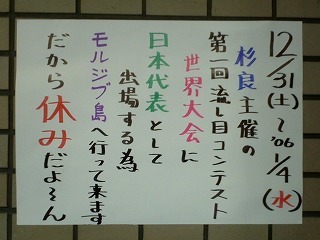 12/31(土)〜'06 1/4(水)
杉良主催の
第一回流し目コンテスト
世界大会に
日本代表として
出場する為
モルジブ島へ行って来ます
だから休みだよ〜ん